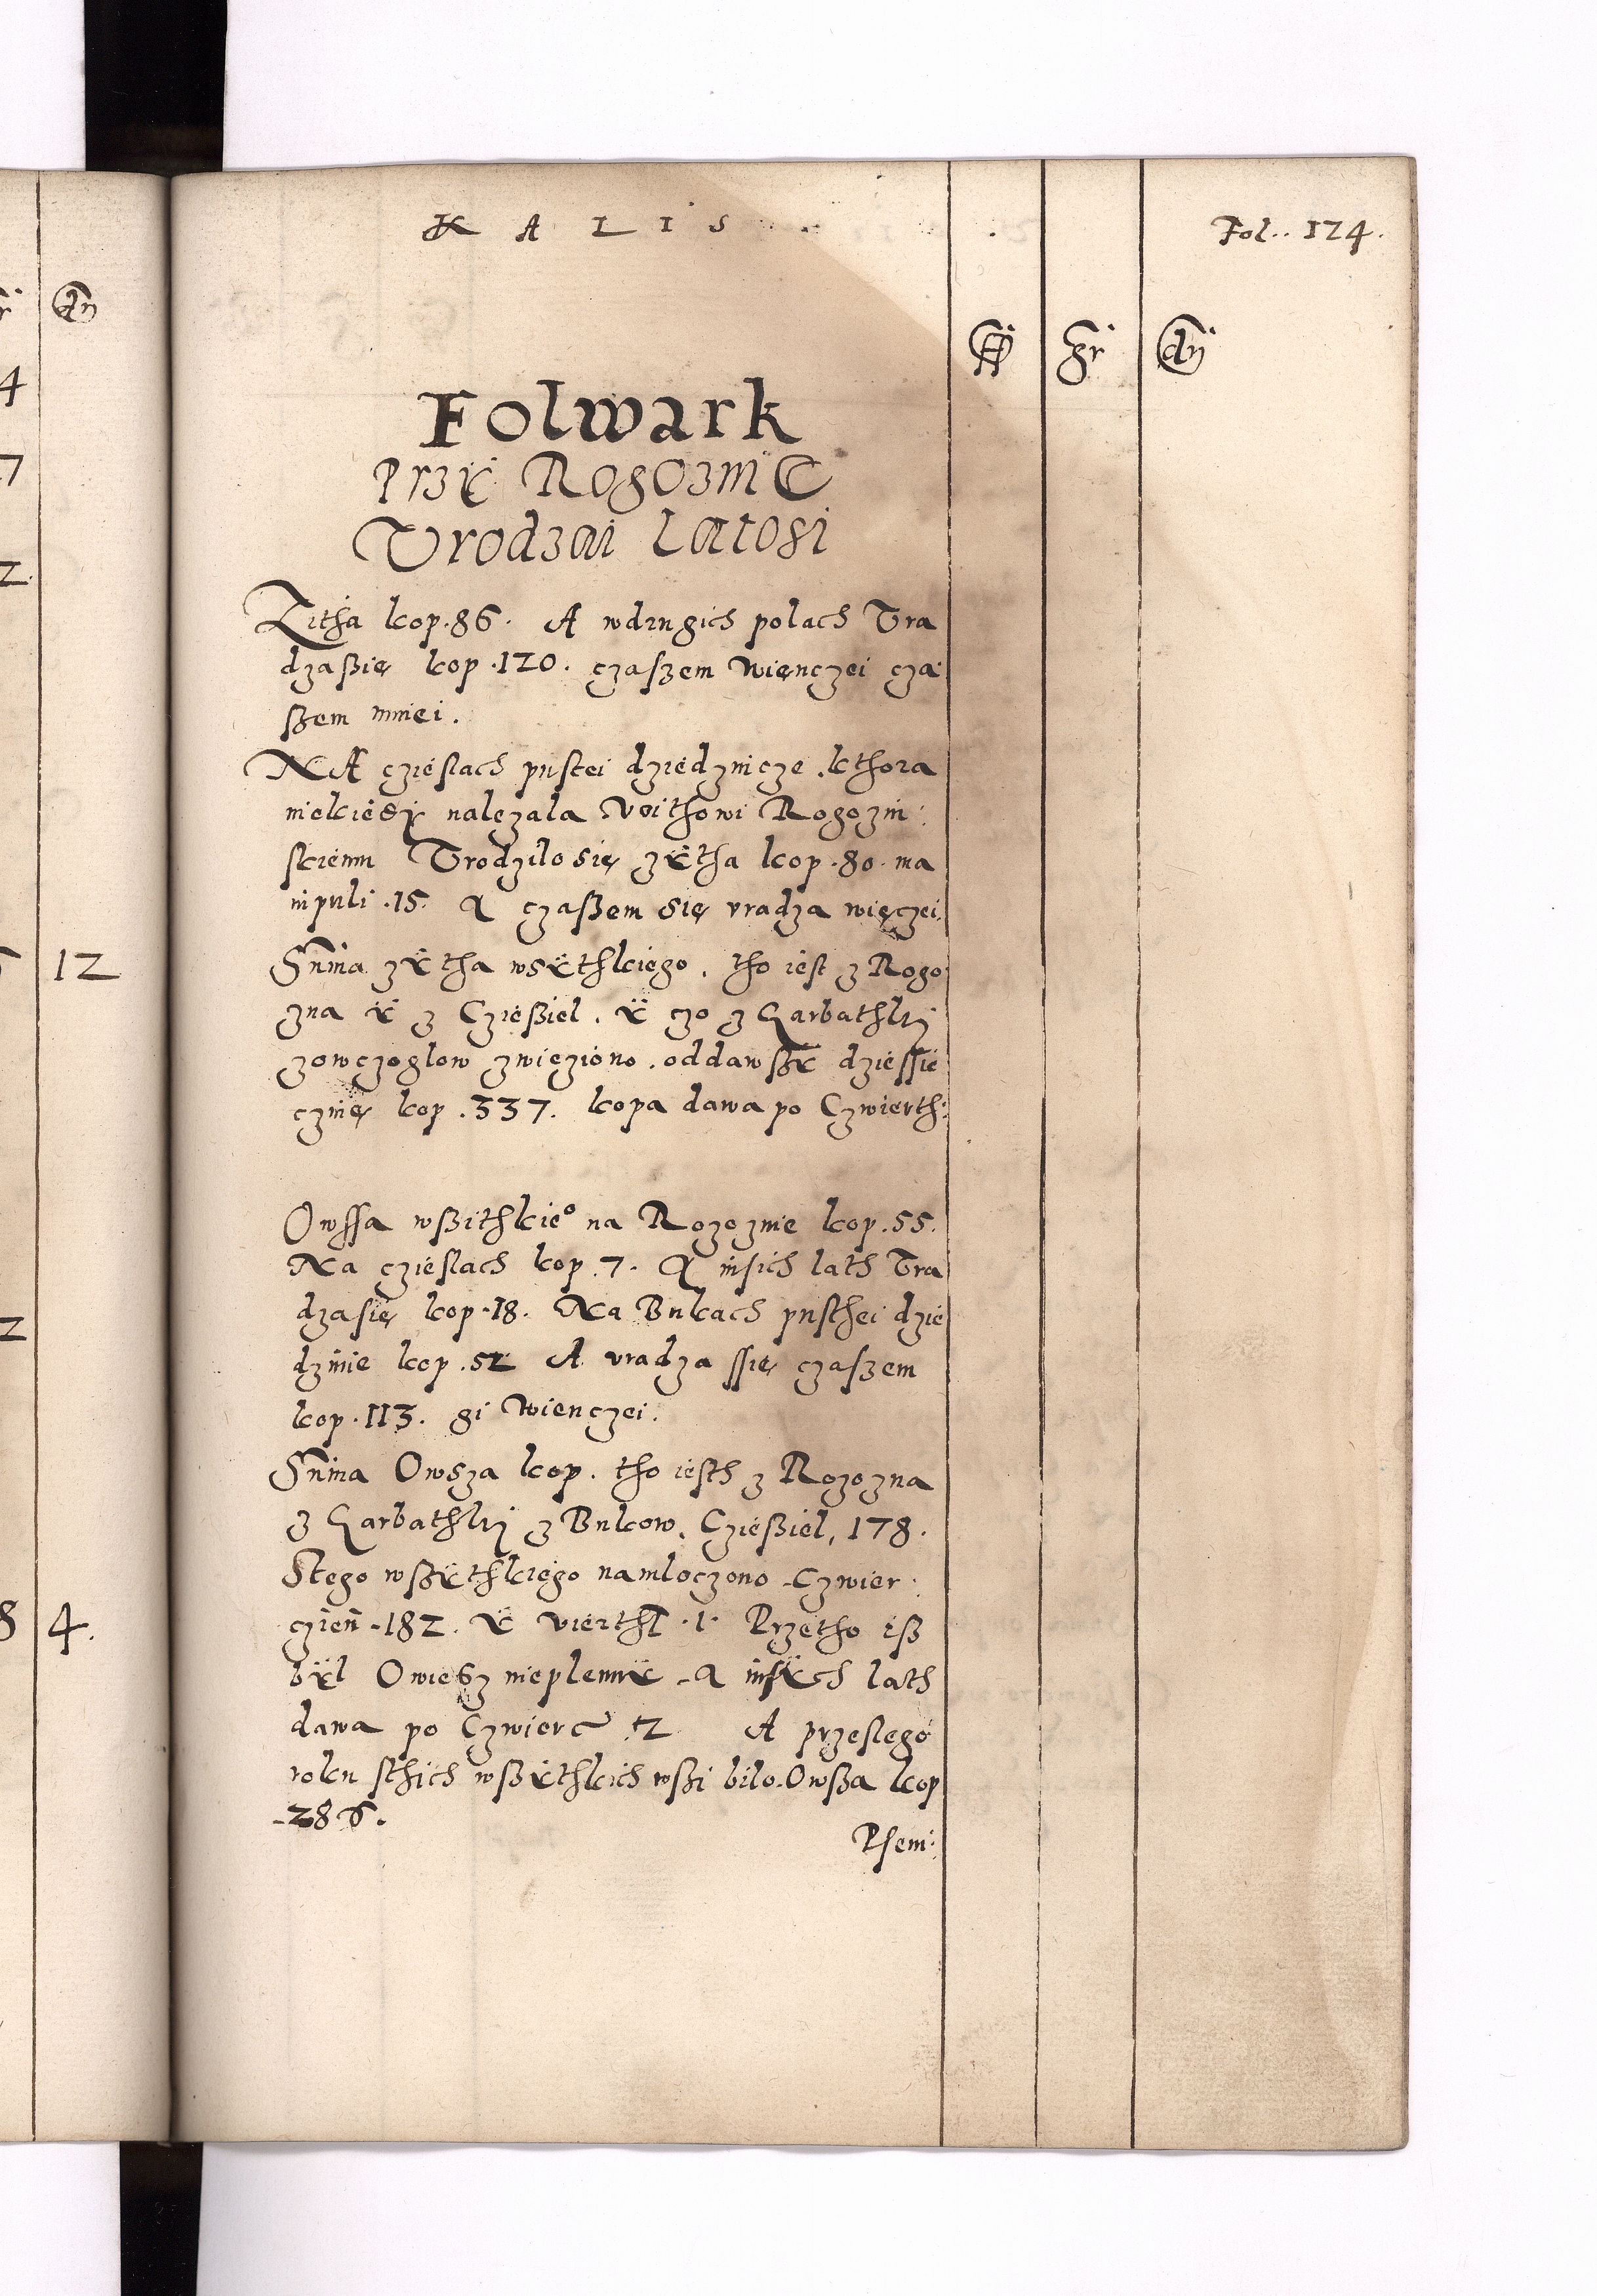 KALIS
Fol. 124.
fl gr dn
Folwark
Przÿ Rogoznie
Vrodzai Latosi
Zitha kop. 86. A wdrugich polach Vra
dzaßię kop. 120. czaszem wienczei cza
szem mniei.
NA czieslach pustei dziedznicze. kthora
niekiedÿ nalezala voithowi Rogozin:
skiemu Vrodzilo się zÿtha kop. 80. ma
nipuli. 15. A czaßem się vradza więczei.
Summa zÿtha wsÿthkiego. tho iest z Rogo
zna ÿ z Czießiel. ÿ czo z Garbathki
zowczoglow zwięziono. oddawßÿ dziessie
czinę kop. 337. kopa dawa po Czwierth:
Owssa wßithkieo na Rogoznie kop. 55.
Na czieslach kop. 7. A insich lath Vra
dzasię kop. 18. Na Bukach pusthei dzie
dzinie kop. 52 A vradza ssię czaszem
kop. 113. gi wienczei.
Summa Owsza kop. tho iesth z Rogozna
z Garbathki z Bukow. Czießiel, 178.
Stego wßÿthkiego namloczono Czwier:
czien 182. ÿ vierthl .1. Przetho iß
bÿl Owiesz nieplennÿ a insÿch lath
dawa po Czwierc 2 A przeslego
roku sthich wßÿthkich wßi bilo. Owßa kop
286.
Psem:
4
7
2.
12
2
8 4.
dn